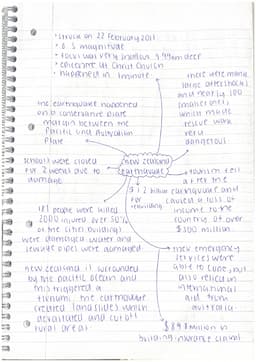 • Struck on 22 February 2011
• 6.3 magnitude
• focus was very shallow
• epicentre at Christ Church
• happened in 1 minute
there were many
large aftershocks
and nearly 100
smaller ones
which made
rescue work
very
dangerous
the earthquake happened
on a conservative plate
margin between the
Pacific and Australian
Plate
schools were closed
for 2 weeks due to
damage
new zealand
earthquake
tourism fell
after the
earthquake and
caused a loss of
income to the
country of over
$300 million
181 people were killed
2000 injured over 50%
of the cities buildings
were damaged water and
sewage pipes were damaged
new zealand is surrounded
by the pacific ocean and
this triggered a
tsunami the earthquake
created landslides which
devastated and cut off
rural areas
their emergency
services were
able to cope but
also relied on
international
aid from
australia
$898 million in
building insurance claims